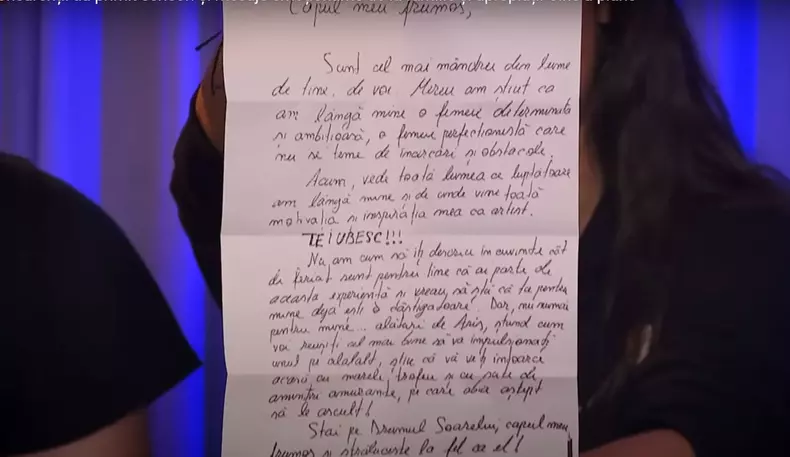 Copul meu frumos,
Sunt cel mai mândru din lume
de tine, de voi. Mereu am știut ca
am lângă mine o femeie determinată
și ambițioasă, o femeie perfecționistă care
nu se teme de încercări și obstacole.
Acum, vede toată lumea ce luptătoare
am lângă mine și de unde vine toată
motivația și inspirația mea ca artist.
TE IUBESC!!!
Nu am cum să îți descriu în cuvinte cât
de fericit sunt pentru tine că ai parte de
aceasta experiență și vreau să știi că tu pentru
mine deja ești o câștigătoare. Dar, nu numai
pentru mine... alături de știind cum
voi reușiți cel mai bine să va impulsionați
unul pe alalalt, știu că vă veți întoarce
acasă cu marele trofeu și cu sute de
amintiri amuzante, pe care abia aștept
să le ascult!
Stai pe Drumul Soarelui, copul meu
frumos și strălucește la fel ca el!